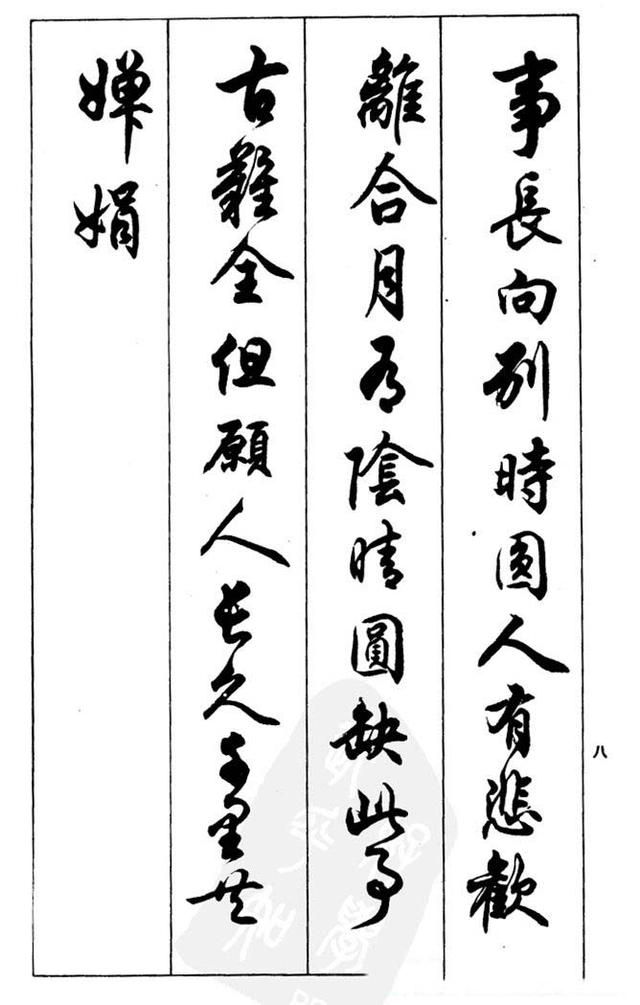 事長向別時圓人有悲歡
離合月有陰晴圓缺此事
古難全但願人長久千里共
嬋娟
八